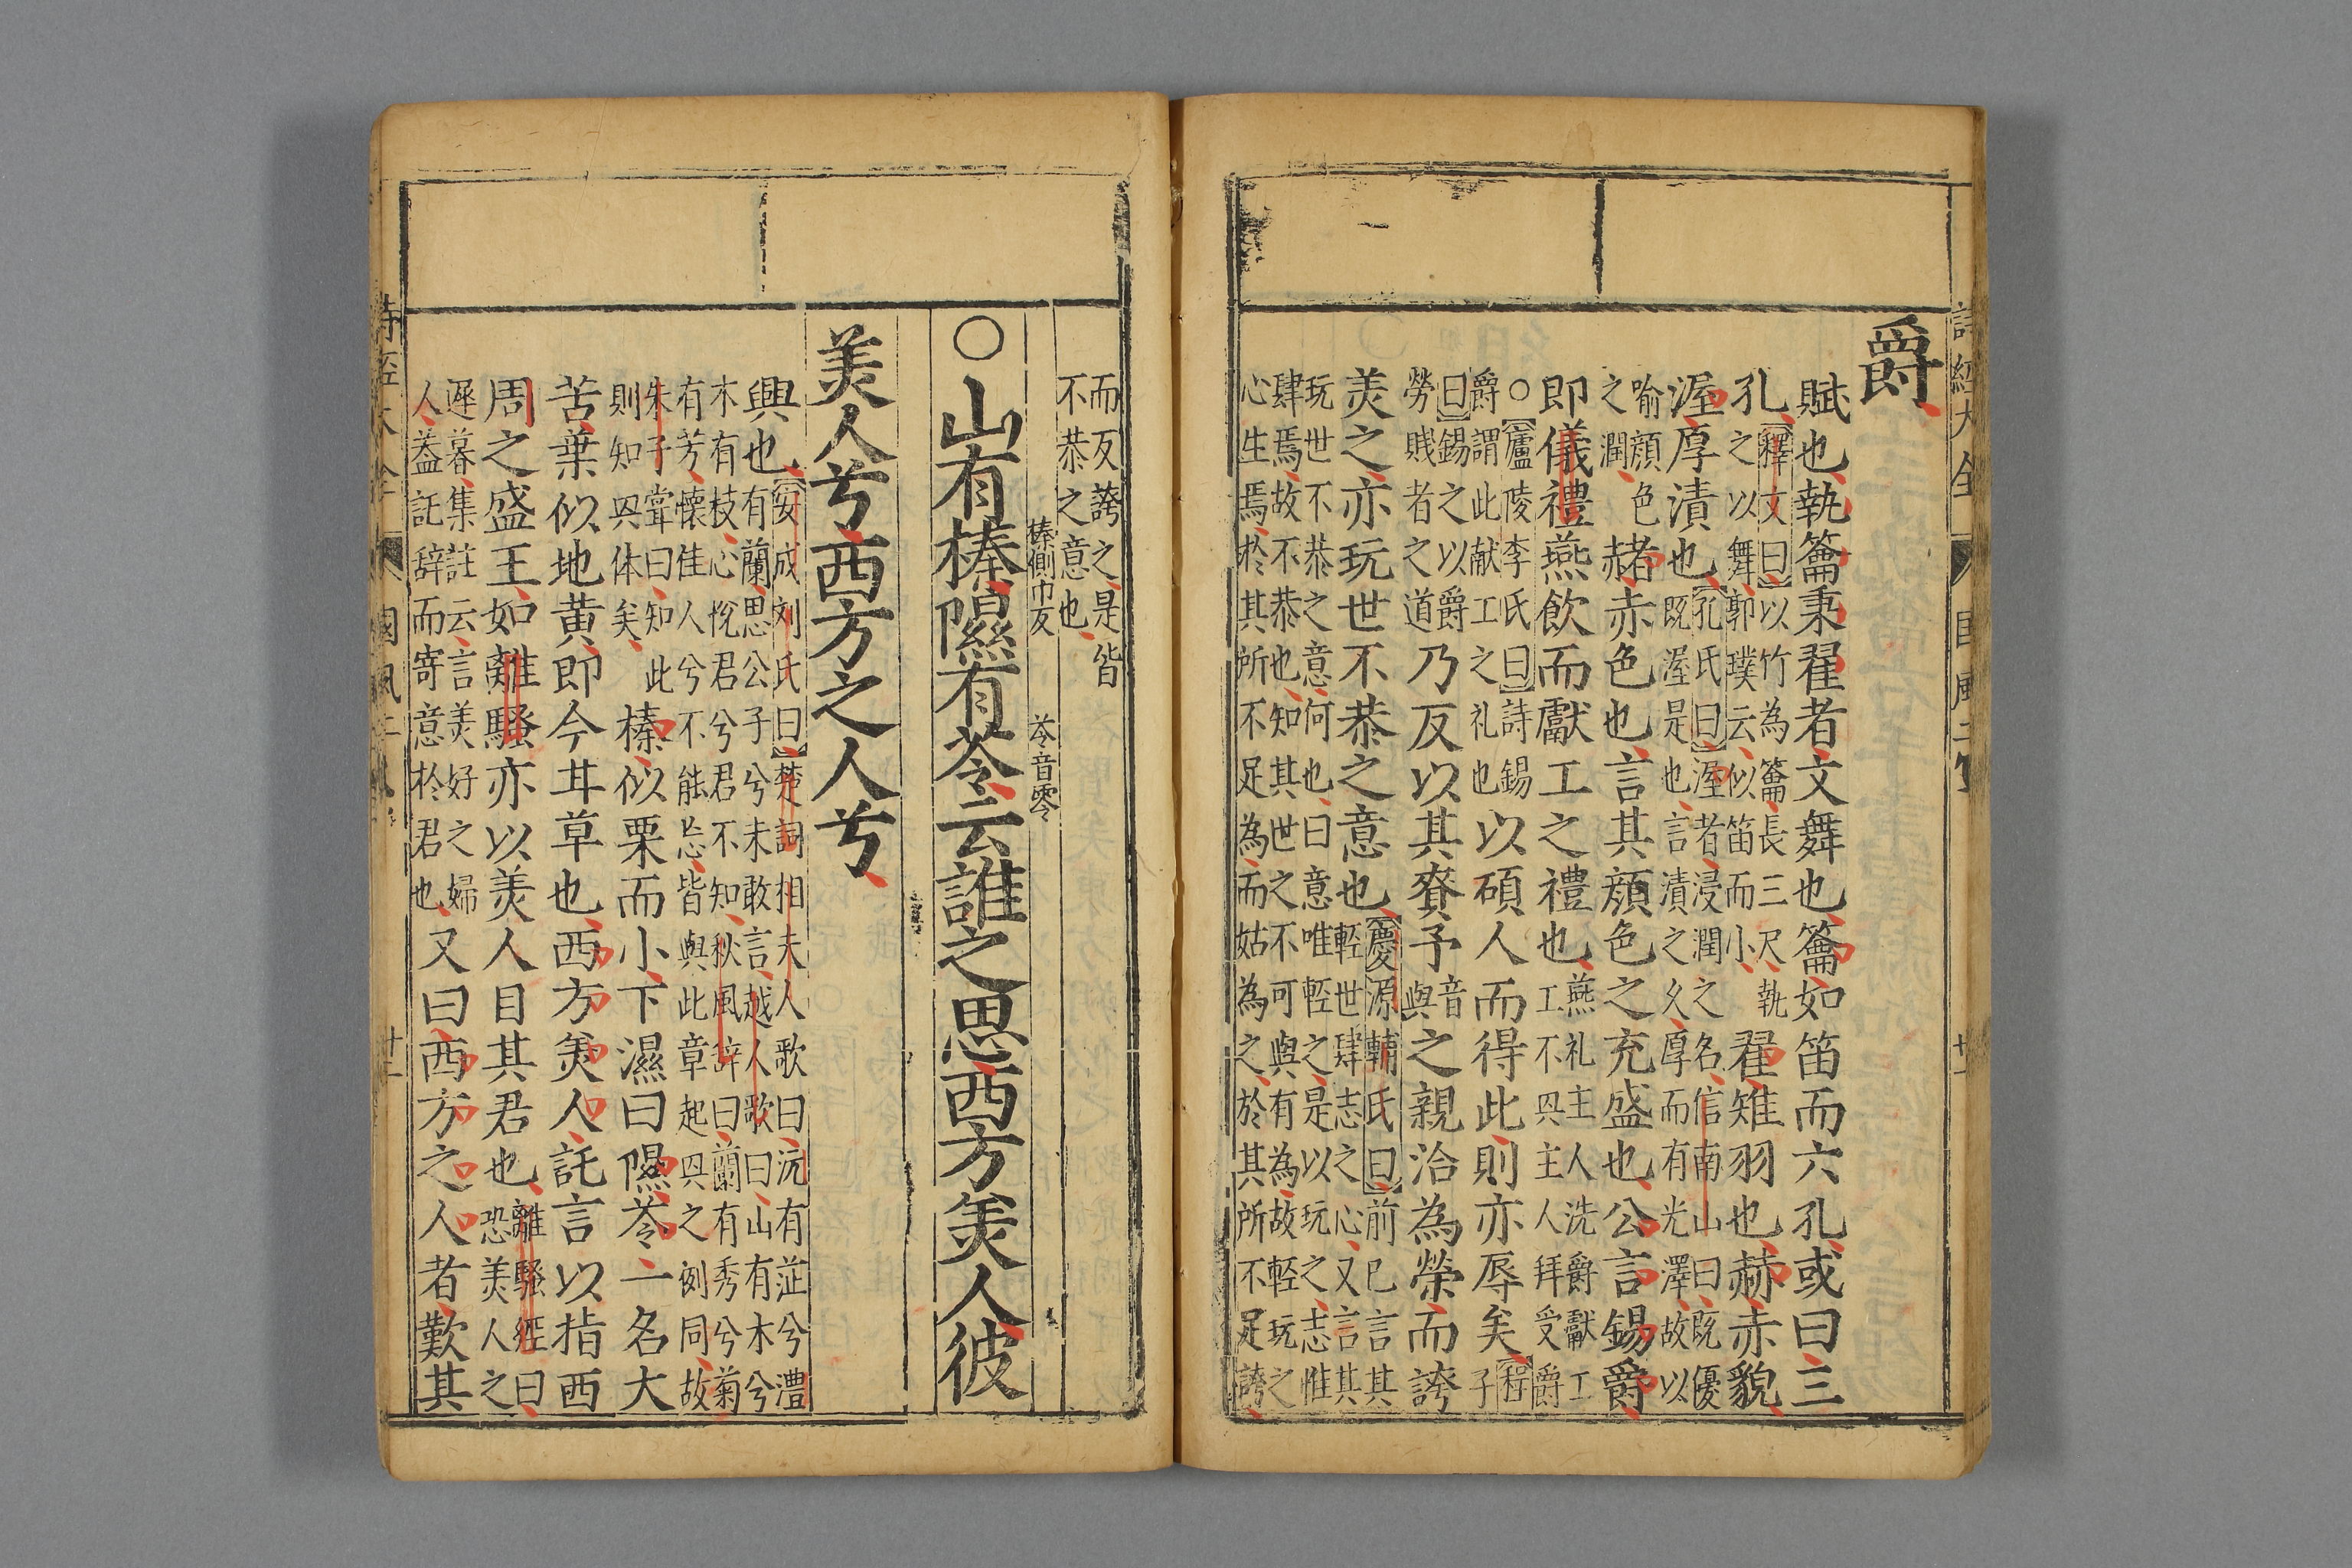 詩經大全
國風二
廿一
爵
賦也執籥秉翟者文舞也籥如笛而六孔或曰三
孔【釋文曰】以竹為籥長三尺執之以舞郭璞云似笛而小翟雉羽也赫赤貌
渥厚漬也【孔氏曰】渥者浸潤之名信南山曰既優既渥是也言漬之久厚而有光澤故以
喻顔色之潤赭赤色也言其顔色之充盛也公言錫爵
即儀禮燕飲而獻工之禮也燕礼主人洗爵獻工工不興主人拜受爵
○【廬陵李氏曰】詩錫爵謂此献工之礼也以碩人而得此則亦辱矣【程子
曰】錫之以爵勞賤者之道乃反以其賚予音與之親洽為榮而誇
美之亦玩世不恭之意也【慶源輔氏曰】前已言其輕世肆志之心又言其
玩世不恭之意何也曰意唯輕之是以玩之志惟
肆焉故不恭也知其世之不可與有為故輕玩之
心生焉於其所不足為而姑為之於其所不足誇
而反誇之是皆
不恭之意也
榛側巾反 苓音零
○山有榛隰有苓云誰之思西方美人彼
美人兮西方之人兮
興也【安成刘氏曰】楚詞湘夫人歌曰沅有茝兮澧有蘭思公子兮未敢言越人歌曰山有木兮
木有枝心悅君兮君不知秋風辞曰蘭有秀兮菊有芳懷佳人兮不能忘皆與此章起興之例同故
朱子甞曰知此則知興体矣榛似栗而小下濕曰隰苓一名大
苦葉似地黄即今甘草也西方美人託言以指西
周之盛王如離騷亦以美人目其君也離騷經曰恐美人之
遲暮集註云言美好之婦人蓋託辞而寄意於君也又曰西方之人者歎其